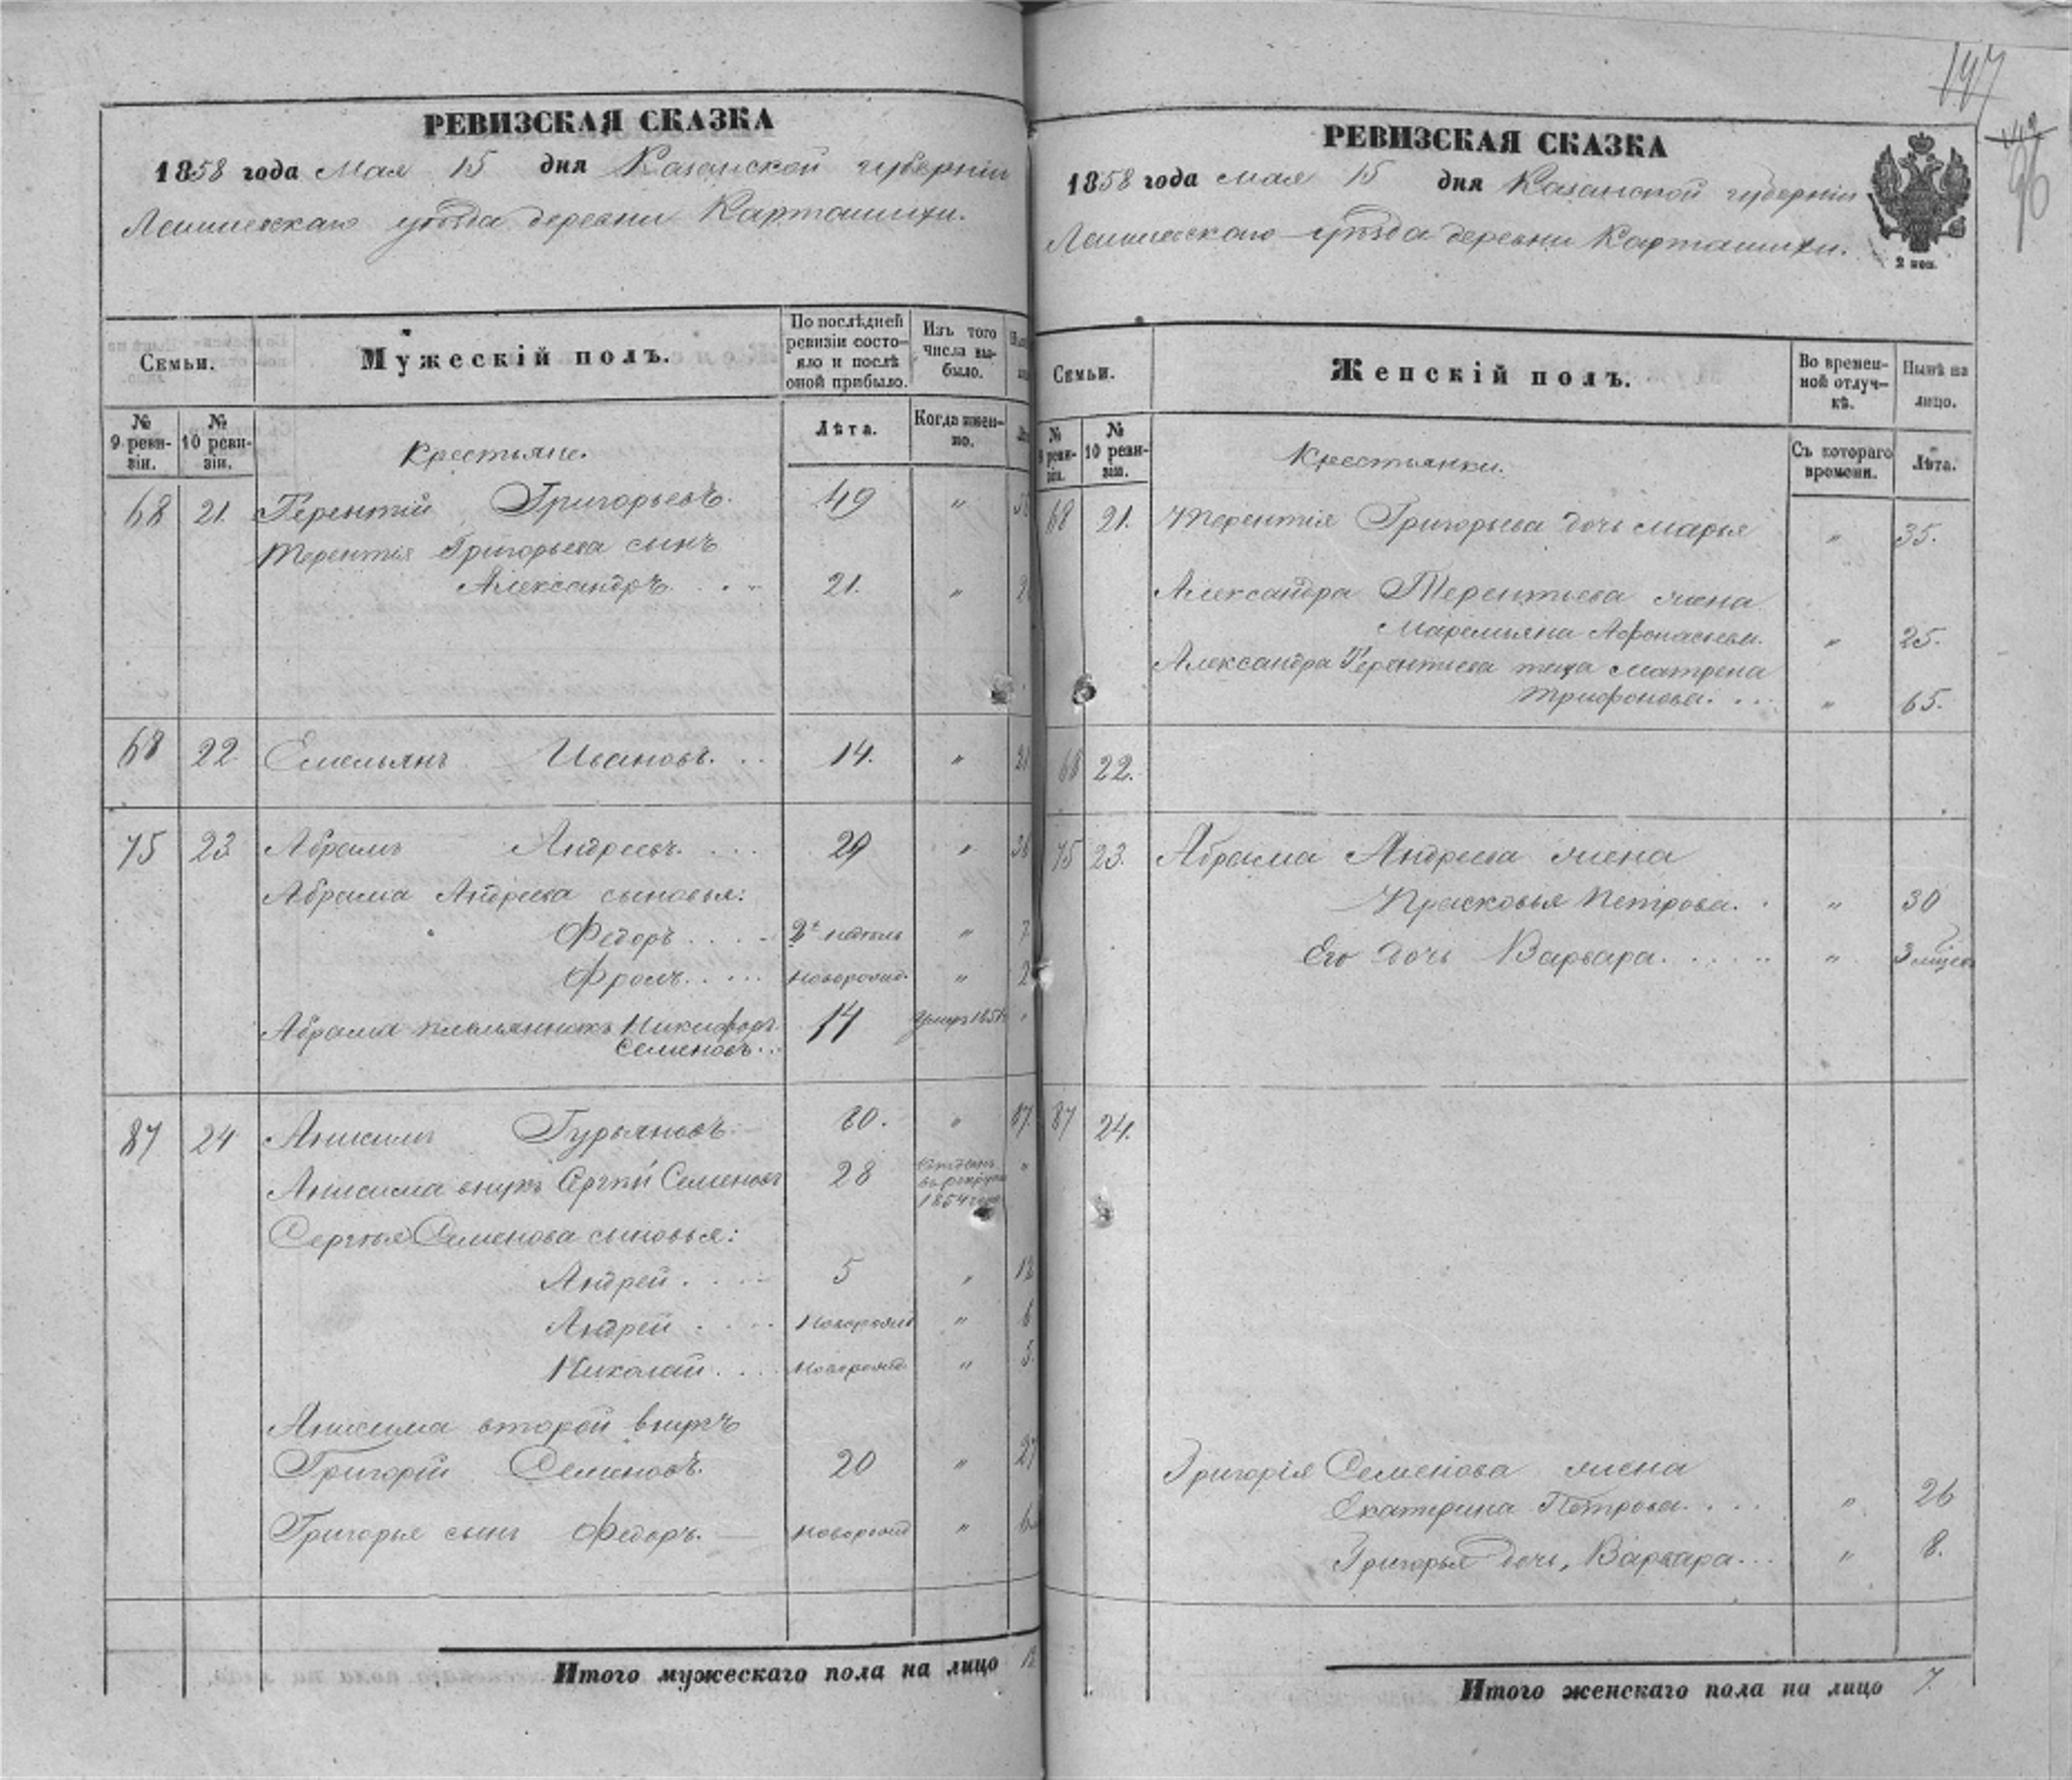 РЕВИЗСКАЯ СКАЗКА
1858 года Мая 15 дня Казанской губерніи
Лаишевскаго уѣзда деревни Карташихи.
Семьи.
Мужескій полъ.
По послѣдней ревизіи состо-
яло и послѣ оной прибыло.
Изъ того числа вы-
было.
№ 9 реви-
зіи.
№ 10 реви-
зіи.
Крестьяне.
Лѣта.
Когда имен-
но.
68 21. Терентій Григорьевъ. 49 "
Терентія Григорьева сынъ
Александръ. . . . 21. "
68 22 Емельянъ Ивановъ. . . 14. " 21
75 23 Абрамъ Андреевъ. . . . 29 " 36
Абрама Андреева сыновья:
Федоръ . . . . 2х недѣль " 7
Фролъ. . . . . новорожд. " 2
Абрама племянникъ Никифоръ 14 умеръ 185
Семеновъ. . .
87 24 Анисимъ Гурьяновъ. 80. " 87.
Анисима внукъ Сергѣй Семеновъ 28 Отданъ
въ рекруты
1854 "
Сергѣя Семенова сыновья:
Андрей. . . . 5 " 12
Андрей . . . . новорожд " 6
Николай. . . . новорожд. " 5.
Анисима второй внукъ
Григорій Семеновъ. 20 " 27
Григорья сынъ Федоръ. новорожд " 6
Итого мужескаго пола на лицо
147
96
РЕВИЗСКАЯ СКАЗКА
1858 года мая 15 дня Казанской губерніи
Лаишевскаго уѣзда деревни Карташихи.
2 коп.
Семьи.
Женскій полъ.
Во времен-
ной отлуч-
кѣ.
Нынѣ на лицо.
№ 9 реви-
зіи.
№ 10 реви-
зіи.
Крестьянки.
Съ котораго времени.
Лѣта.
68 21. Терентія Григорьева дочь Марья " 35.
Александра Терентьева жена
Маремьяна Афонасьева. " 25.
Александра Терентьева теща Матрена
Трифонова. . . . " 65.
68 22.
75 23. Абрама Андреева жена
Прасковья Петрова. . " 30
Его дочь Варвара. . . . . . " 3 мѣсец
87 24.
Григорія Семенова жена
Екатерина Петрова. . . . " 26
Григорья дочь, Варвара. . . " 8.
Итого женскаго пола на лицо 7.